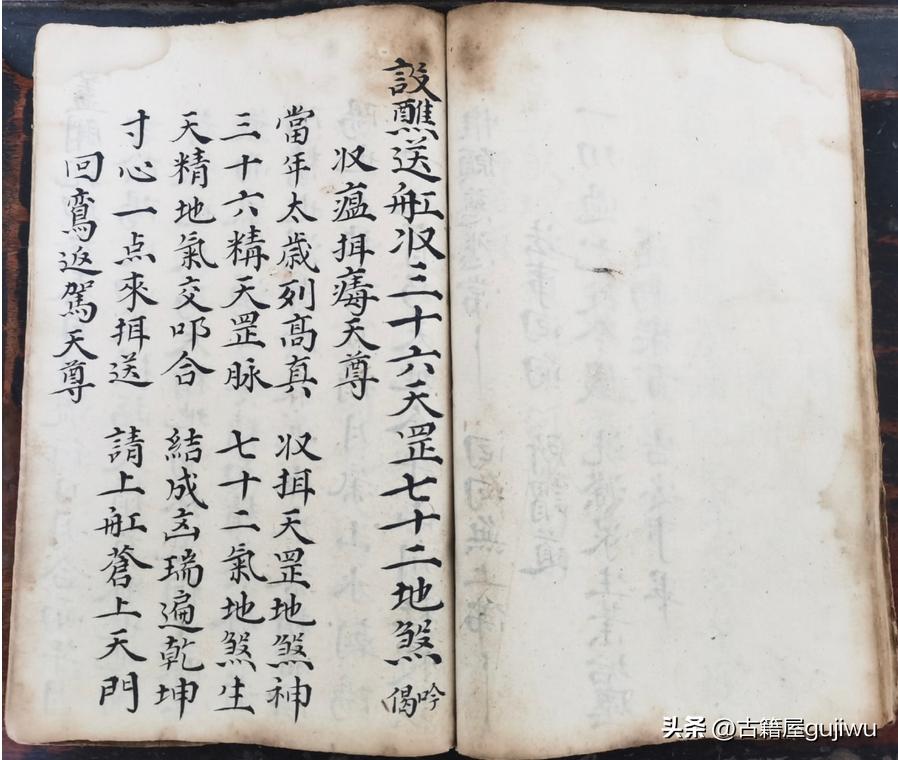 設醮送舡収三十六天罡七十二地煞 吟偈
収瘟揖毒天尊
當年太歲列高真 収揖天罡地煞神
三十六精天罡脉 七十二氣地煞生
天精地氣交叩合 結成凶瑞遍乾坤
寸心一点來揖送 請上舡蒼上天門
回鸞返駕天尊
头条 @古籍屋gujiwu